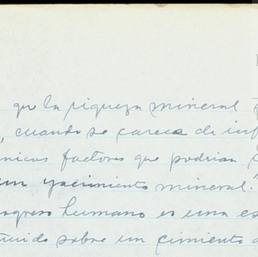 que la riqueza mineral
, cuando se carece de inf
nicos factores que podrian
un yacimiento mineral."
ogreso humano es una es
tuido sobre un cimiento d